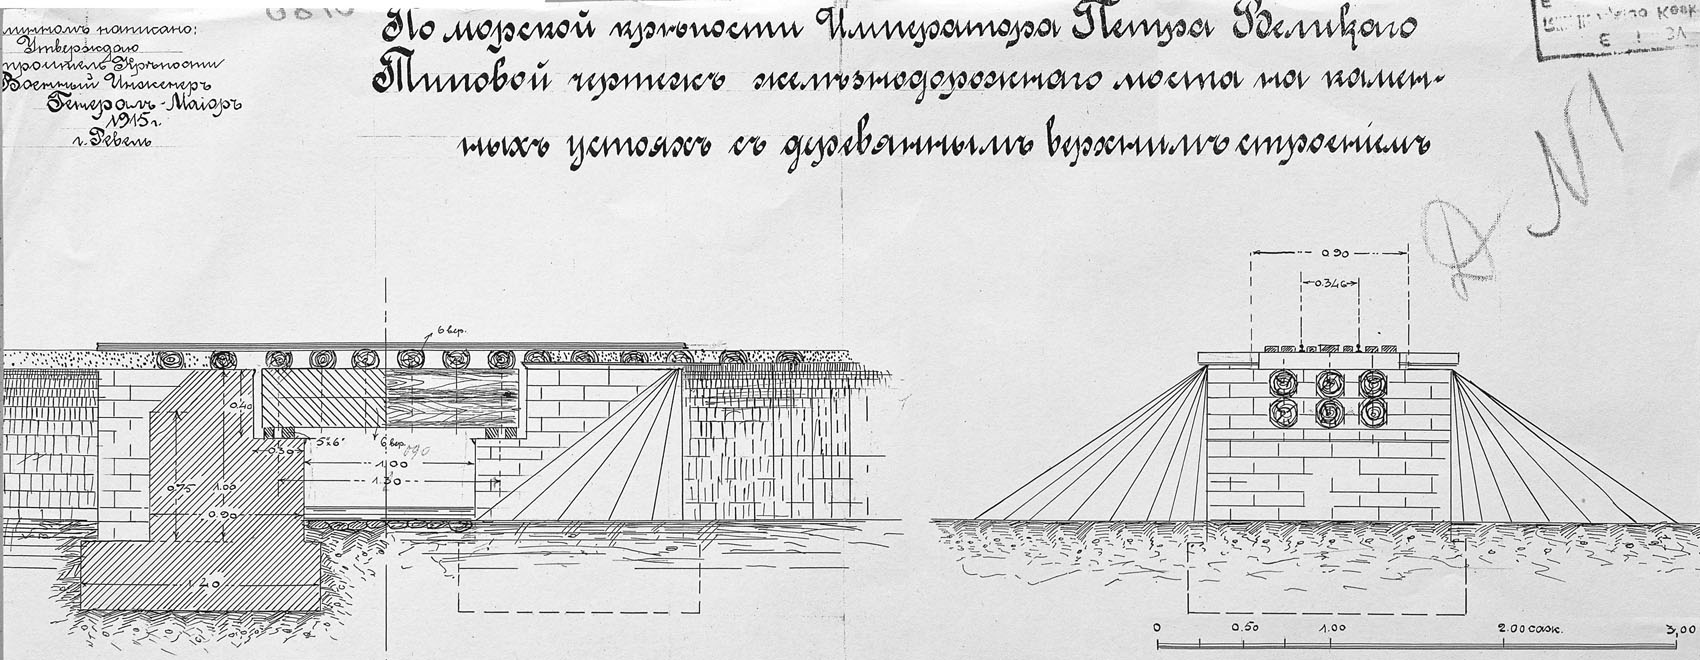 написано:
Утверждаю
Строитель Крѣпости
Военный Инженеръ
Генералъ-Маіоръ
1915 г.
г. Ревель
По морской крѣпости Императора Петра Великаго
Типовой чертежъ желѣзнодорожнаго моста на камен-
ныхъ устояхъ съ деревяннымъ верхнимъ строеніемъ
N 1
0.90
0.346
6 вер.
0.40
5"x6"
6 вер.
0.90
0.30
1.00
1.30
0.75
1.00
0.90
1.20
0 0.50 1.00 2.00 саж. 3,00